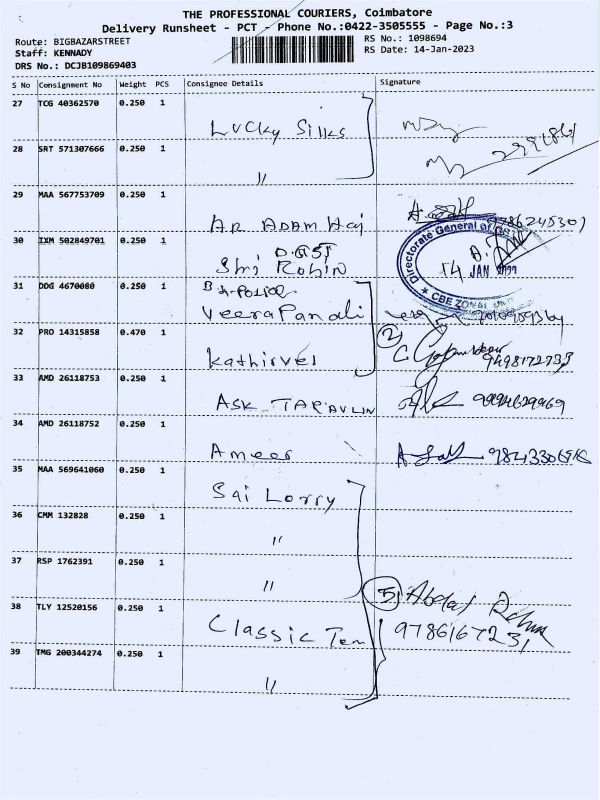 THE PROFESSIONAL COURIERS, Coimbatore
Delivery Runsheet - PCT - Phone No.:0422-3505555 - Page No.:3
Route: BIGBAZARSTREET
Staff: KENNADY
DRS No.: DCJB109869403
RS No.: 1098694
RS Date: 14-Jan-2023
S No Consignment No Weight PCS Consignee Details Signature
27 TCG 40362570 0.250 1 Lucky Silks
28 SRT 571307666 0.250 1 〃
29 MAA 567753709 0.250 1 AR ADAM Haj
30 IXM 502849701 0.250 1 D.GST
Shri Robin
Directorate General of
14 JAN
CBE ZONAL
31 DDG 4670080 0.250 1 Veerapandi
32 PRO 14315858 0.470 1 Kathirvel 2 9498172735
33 AMD 26118753 0.250 1 ASK TARPAVLIN 9994629969
34 AMD 26118752 0.250 1 Ameer
35 MAA 569641060 0.250 1 Sai Lorry
36 CMM 132828 0.250 1 〃
37 RSP 1762391 0.250 1 〃
5 Abdul
38 TLY 12520156 0.250 1 Classic Ten 9786167231
39 TMG 200344274 0.250 1 〃